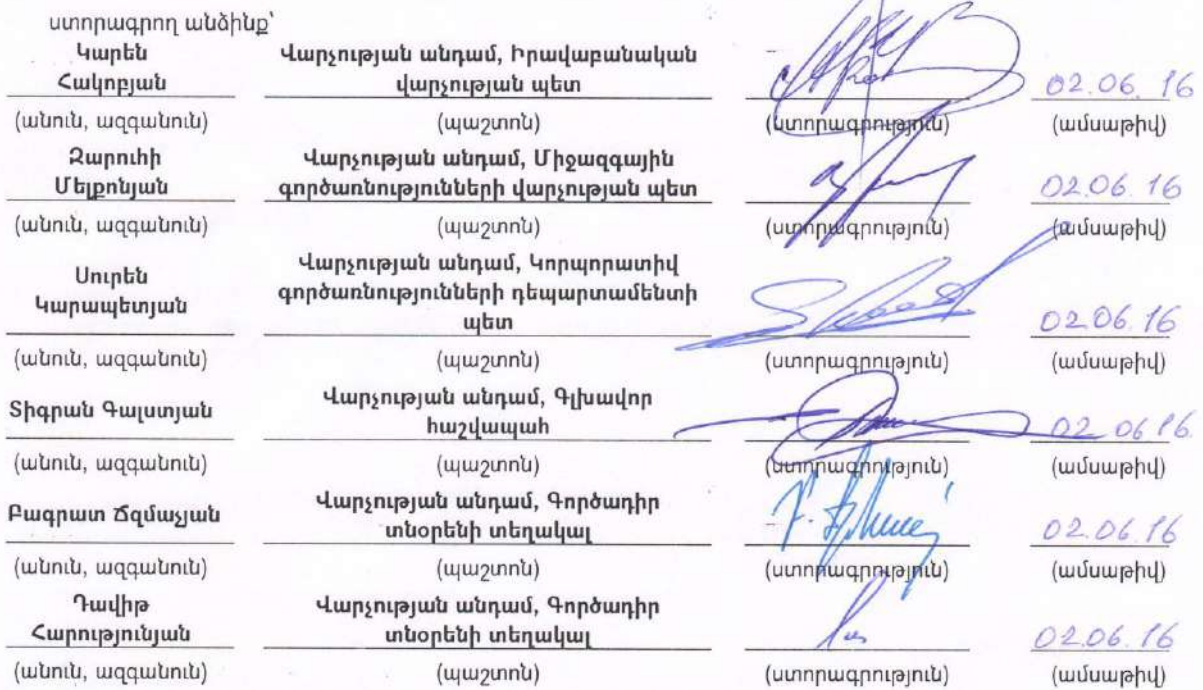 ստորագրող անձինք՝
Կարեն Վարչության անդամ, Իրավաբանական
Հակոբյան վարչության պետ 02.06.16
(անուն, ազգանուն) (պաշտոն) (ստորագրություն) (ամսաթիվ)
Զարուհի Վարչության անդամ, Միջազգային
Մելքոնյան գործառնությունների վարչության պետ 02.06.16
(անուն, ազգանուն) (պաշտոն) (ստորագրություն) (ամսաթիվ)
Սուրեն Վարչության անդամ, Կորպորատիվ
Կարապետյան գործառնությունների դեպարտամենտի
պետ 02.06.16
(անուն, ազգանուն) (պաշտոն) (ստորագրություն) (ամսաթիվ)
Տիգրան Գալստյան Վարչության անդամ, Գլխավոր
հաշվապահ 02.06 16
(անուն, ազգանուն) (պաշտոն) (ստորագրություն) (ամսաթիվ)
Բագրատ Ճզմաչյան Վարչության անդամ, Գործադիր
տնօրենի տեղակալ 02.06.16
(անուն, ազգանուն) (պաշտոն) (ստորագրություն) (ամսաթիվ)
Դավիթ Վարչության անդամ, Գործադիր
Հարությունյան տնօրենի տեղակալ 02.06.16
(անուն, ազգանուն) (պաշտոն) (ստորագրություն) (ամսաթիվ)